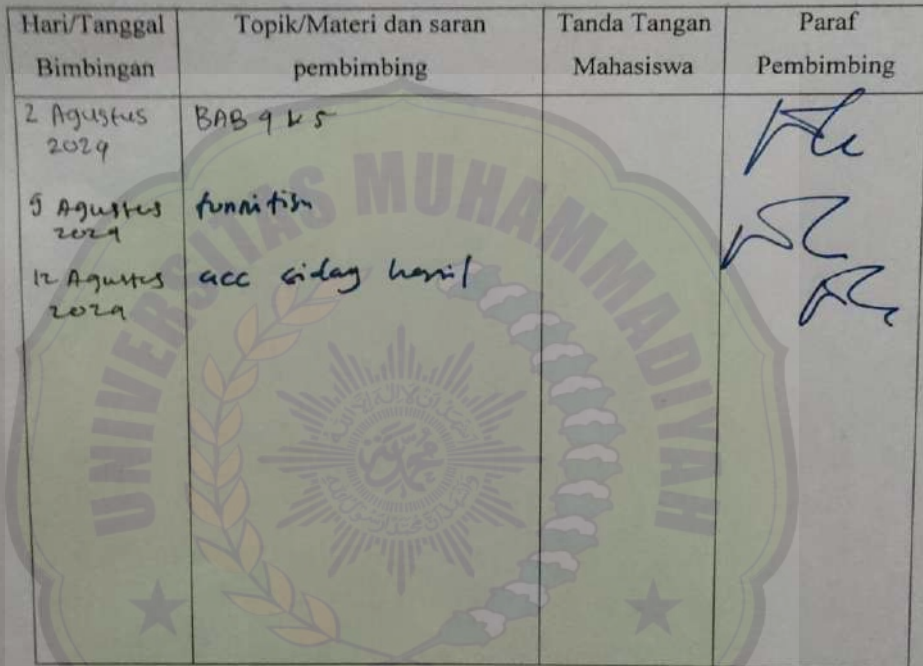 Hari/Tanggal
Bimbingan
Topik/Materi dan saran
pembimbing
Tanda Tangan
Mahasiswa
Paraf
Pembimbing
2 Agustus
2024
BAB 4 & 5
5 Agustus
2024
12 Agustus
2024
acc sidang hasil
UNIVERSITAS MUHAMMADIYAH